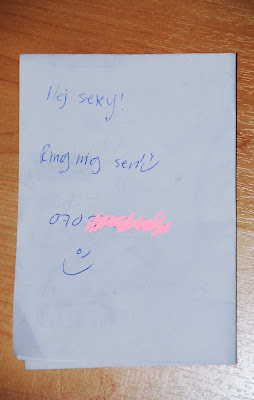 Hej sexy!
Ring mig sen!
070